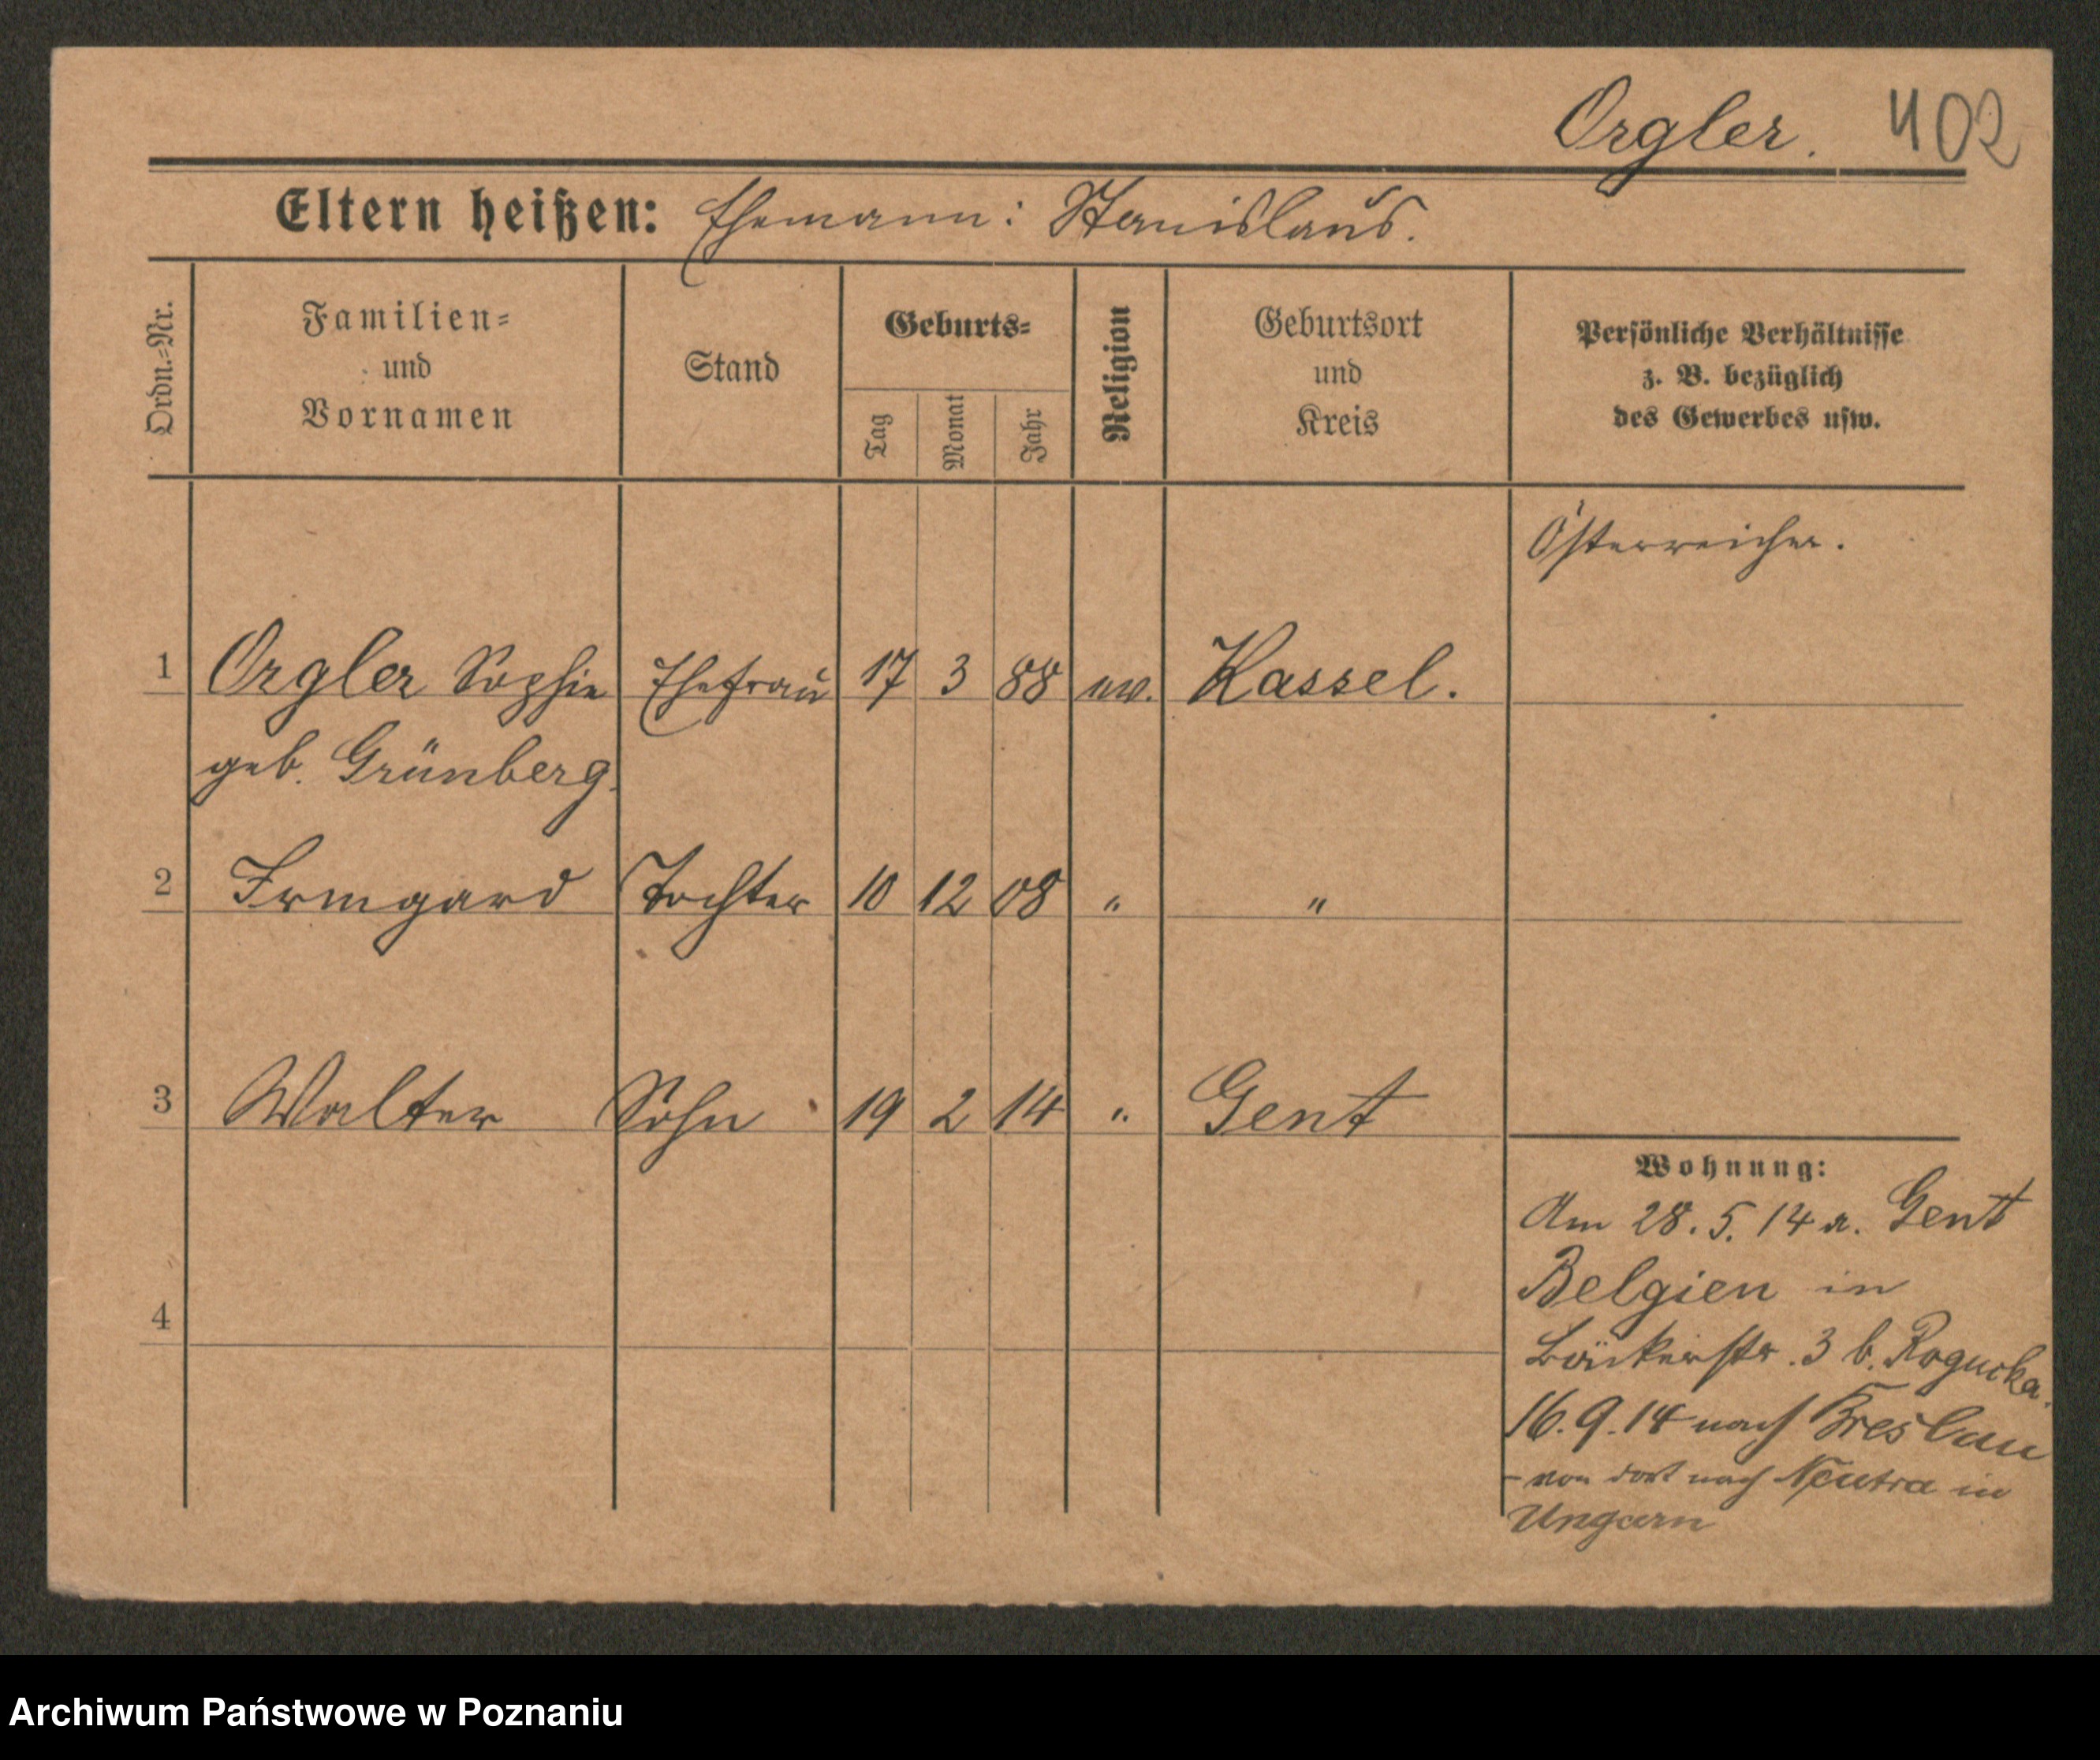 Orgler. 402
Eltern heißen: Ehemann: Stanislaus.
Ordn.=Nr.
Familien=
und
Vornamen
Stand
Geburts=
Tag
Monat
Jahr
Religion
Geburtsort
und
Kreis
Persönliche Verhältnisse
z. B. bezüglich
des Gewerbes usw.
Österreicher.
1 Orgler Sophie Ehefrau 17 3 88 ev. Kassel.
geb. Grünberg.
2 Irmgard Tochter 10 12 08 " "
3 Walter Sohn 19 2 14 " Gent
4
Wohnung:
Am 28. 5. 14 a. Gent
Belgien in
Bäckerstr. 3 b. Rogucka.
16. 9. 14 nach Breslau
- von dort nach Neutra in
Ungarn
Archiwum Państwowe w Poznaniu